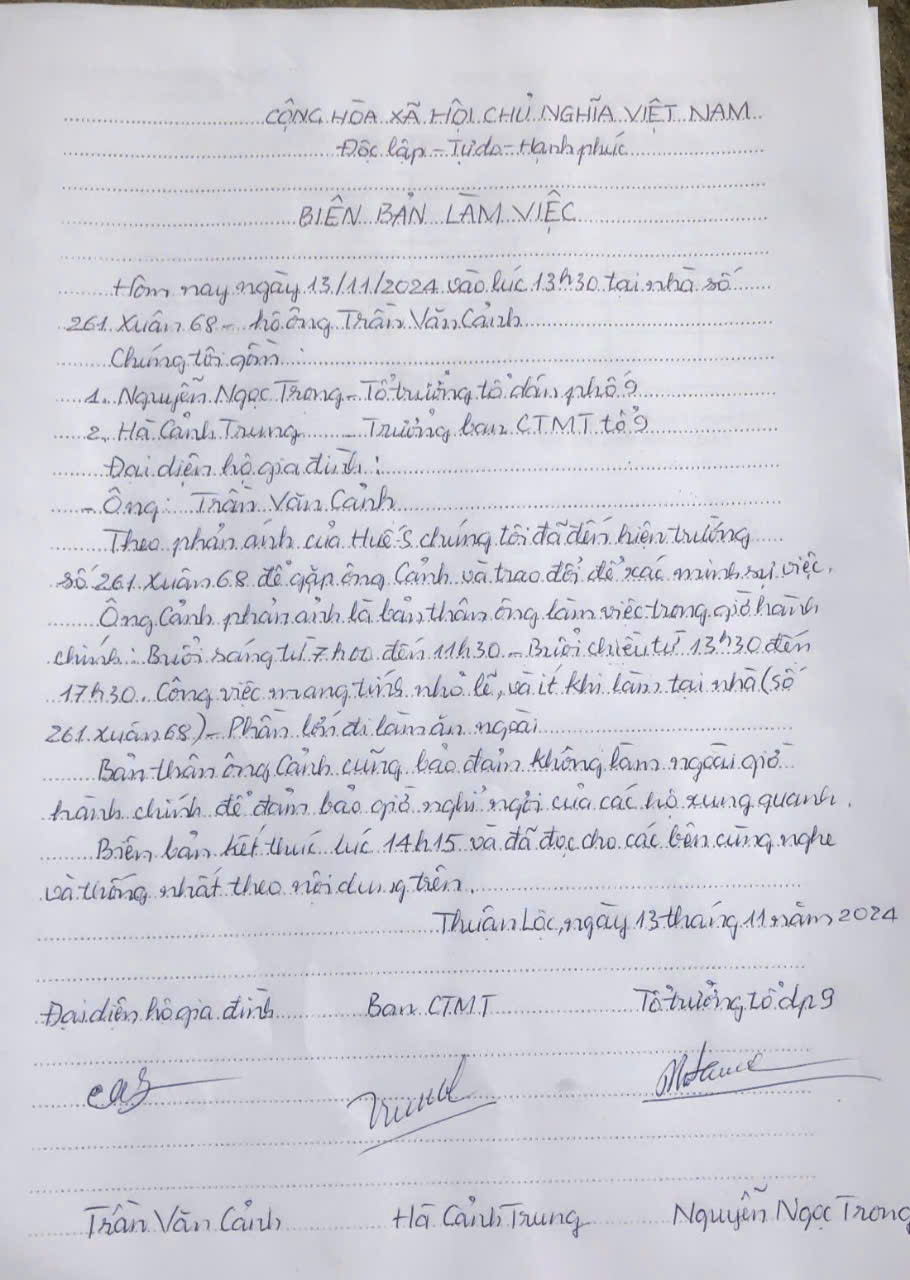 CỘNG HÒA XÃ HỘI CHỦ NGHĨA VIỆT NAM
Độc lập - Tự do - Hạnh phúc
BIÊN BẢN LÀM VIỆC
Hôm nay ngày 13/11/2024 vào lúc 13h30 tại nhà số
261 Xuân 68 - hộ ông Trần Văn Cảnh
Chúng tôi gồm:
1. Nguyễn Ngọc Trong - Tổ trưởng tổ dân phố 9
2. Hà Cảnh Trung - Trưởng ban CTMT tổ 9
Đại diện hộ gia đình:
- Ông: Trần Văn Cảnh
Theo phản ánh của Huế S chúng tôi đã đến hiện trường
số 261 Xuân 68 để gặp ông Cảnh và trao đổi để xác minh sự việc.
Ông Cảnh phản ảnh là bản thân ông làm việc trong giờ hành
chính: Buổi sáng từ 7h00 đến 11h30 - Buổi chiều từ 13h30 đến
17h30. Công việc mang tính nhỏ lẽ, và ít khi làm tại nhà (số
261 Xuân 68) - Phần lớn đi làm ăn ngoài
Bản thân ông Cảnh cũng bảo đảm không làm ngoài giờ
hành chính để đảm bảo giờ nghỉ ngơi của các hộ xung quanh.
Biên bản kết thúc lúc 14h15 và đã đọc cho các bên cùng nghe
và thống nhất theo nội dung trên.
Thuận Lộc, ngày 13 tháng 11 năm 2024
Đại diện hộ gia đình Ban CTMT Tổ trưởng tổ dp 9
Trần Văn Cảnh Hà Cảnh Trung Nguyễn Ngọc Trong